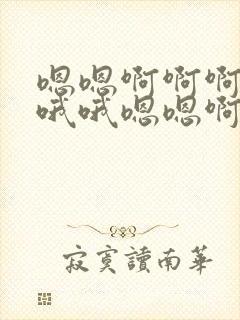 嗯嗯啊啊啊
哦哦嗯嗯啊
寂寞讀南華